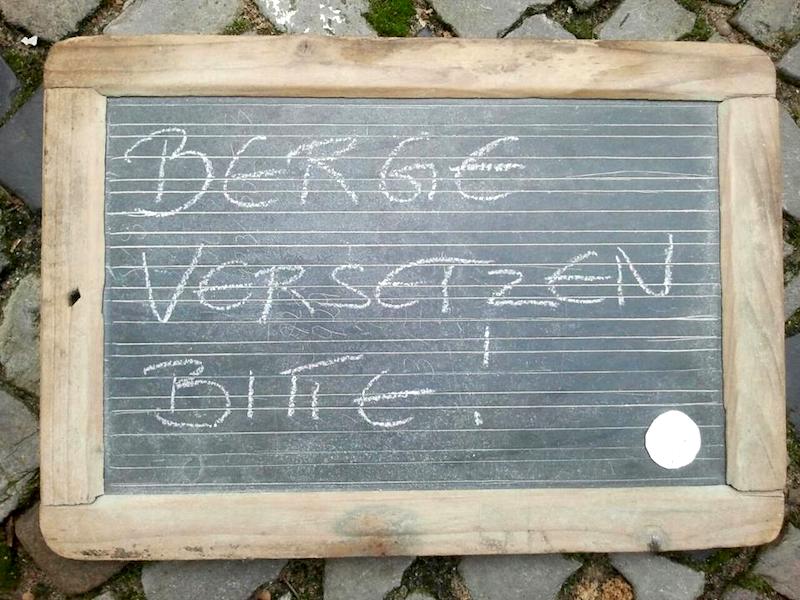 BERGE
VERSETZEN
BITTE!